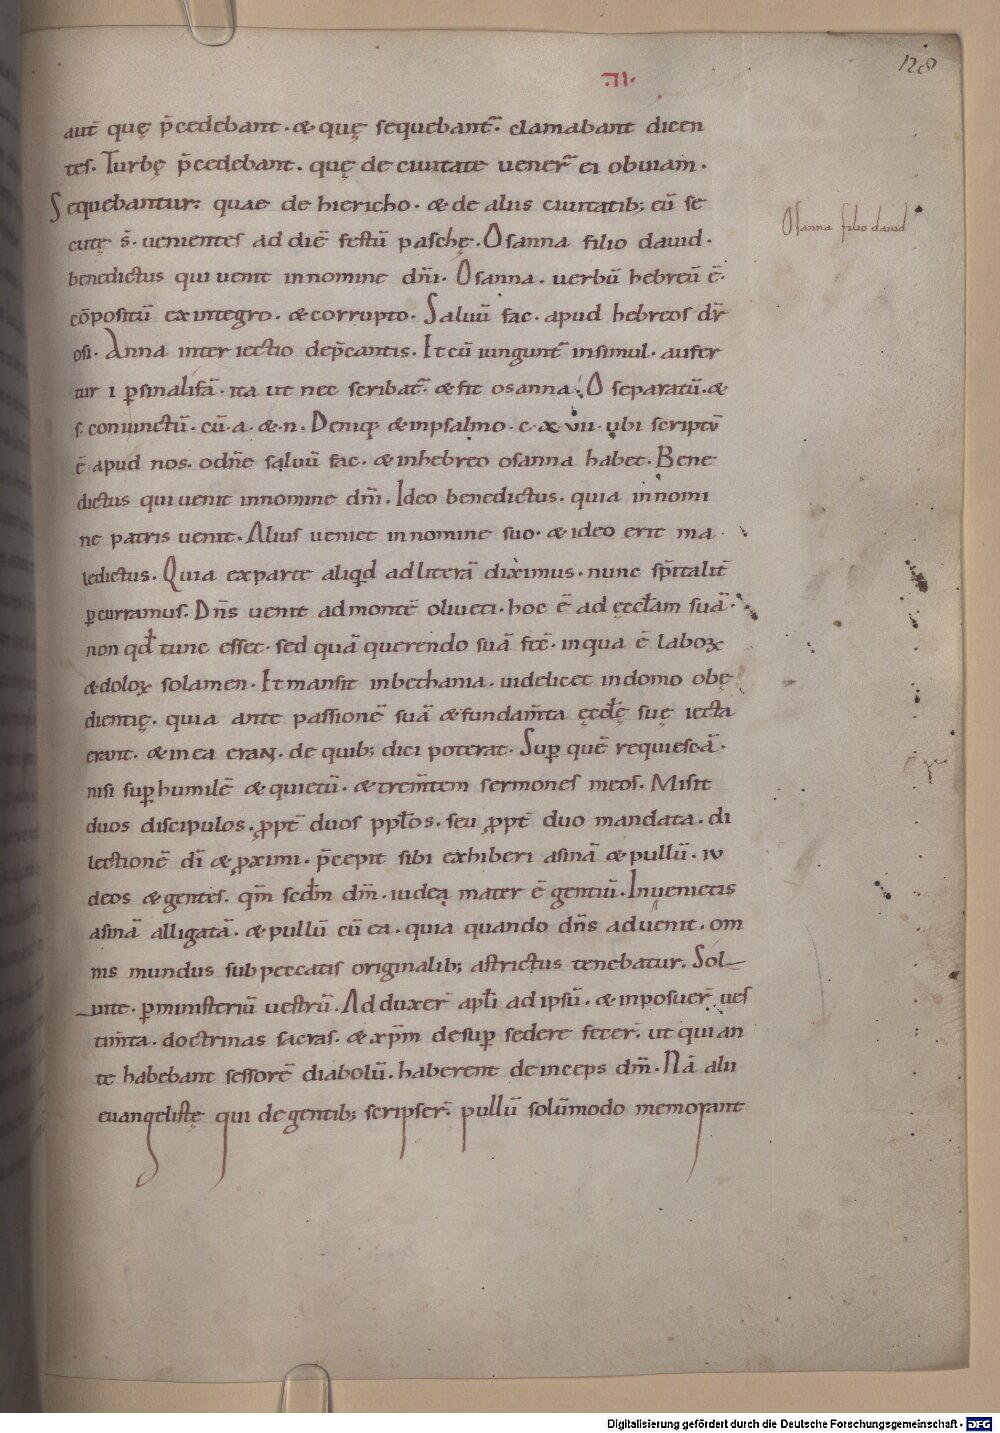 128
·VI·
aut̄ quę p̄cedebant · & quę sequebant᷑ · clamabant dicen
tes. Turbę p̄cedebant · quę de ciuitate uener̄ ei obuiam ·
Sequebantur: quae de hiericho · & de aliis ciuitatib; eū se
cutę s̄ · uenientes ad diē festū paschę · Osanna filio dauid ·
Osanna filio dauid
benedictus qui uenit in nomine dn̄i · Osanna · uerbū hebreū ē ·
cōpositū ex integro · & corrupto · Saluū fac · apud hebreos dr̄
osi · Anna interiectio dep̄cantis · Et cū iungunt᷑ insimul · aufer
tur i p̱ sinalifā · ita ut nec scribat᷑ · & fit osanna · O separatū · &
s · coniunctū · cū · a · & · n · Deniq; & in psalmo · c · x · vii · ubi scriptū
ē apud nos · o dn̄e saluū fac · & in hebreo osanna habet · Bene
dictus qui uenit in nomine dn̄i · Ideo benedictus · quia in nomi
ne patris uenit · Alius ueniet in nomine suo · & ideo erit ma
ledictus · Quia ex parte aliqd ad literā diximus · nunc sp̄italit̄
p̱curramus · Dn̄s uenit ad montē oliueti · hoc ē ad ęccl̄am suā ·
non qđ tunc esset · sed quā querendo suā fec̄ · in qua ē laboꝝ
& doloꝝ solamen · Et mansit in bethania · uidelicet in domo obę
dientię · quia ante passionē suā & fundam̄ta ęccl̄ę suę iecta
erant · & in ea erant · de quib; dici poterat · Sup̱ quē requiescā ·
nisi sup̱ humilē & quietū · & trem̄tem sermones meos · Misit
duos discipulos · ꝓpt̄ duos ppl̄os · seu ꝓpt̄ duo mandata · di
lectionē dī & ꝓximi · p̄cepit sibi exhiberi asinā & pullū · iu
deos & gentes · qm̄ scđm dm̄ · iudea mater ē gentiū · Inuenietis
asinā alligatā · & pullū cū ea · quia quando dn̄s aduenit · om
nis mundus sub peccatis originalib; astrictus tenebatur · Sol
uite · p̱ ministeriū uestrū · Adduxer̄ apl̄i ad ipsū · & inposuer̄ ues
tim̄ta · doctrinas sacras · & xp̄m desup̱ sedere fecer̄ · ut qui an
te habebant sessorē diabolū · haberent deinceps dm̄ · Nā alii
euangelistę qui de gentib; scripser̄ · pullū solūmodo memorant
Digitalisierung gefördert durch die Deutsche Forschungsgemeinschaft - DFG